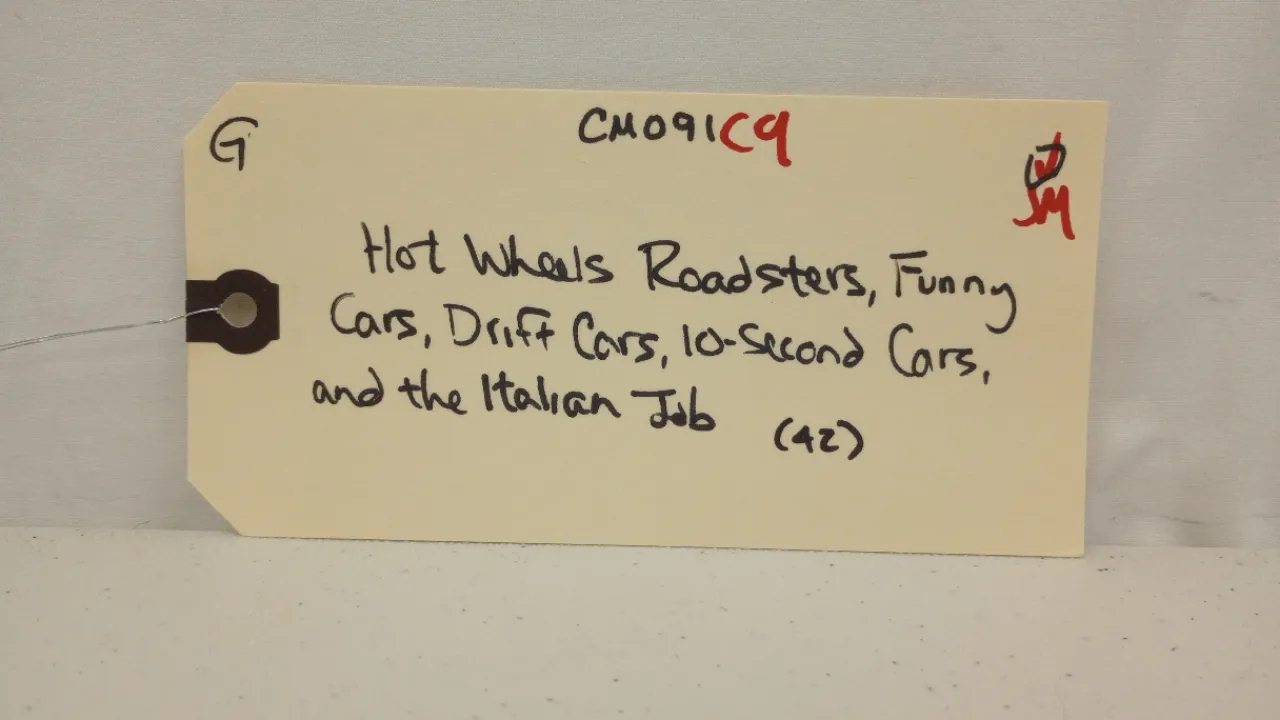 G
CM091C9
JM
Hot Wheels Roadsters, Funny
Cars, Drift Cars, 10-Second Cars,
and the Italian Job
(42)